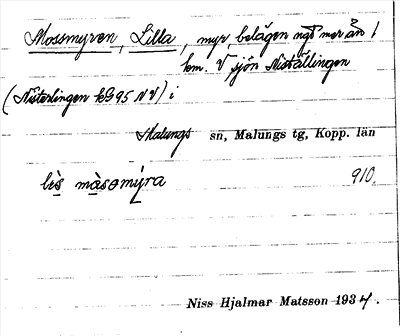 Mossmyren, Lilla, myr, belägen ngt mer än 1
km. V sjön Niställingen
(Nisterlingen kB 95 NV) i
Malungs sn, Malungs tg, Kopp. län
lìs màsomýra 910.
Niss Hjalmar Matsson 1934.